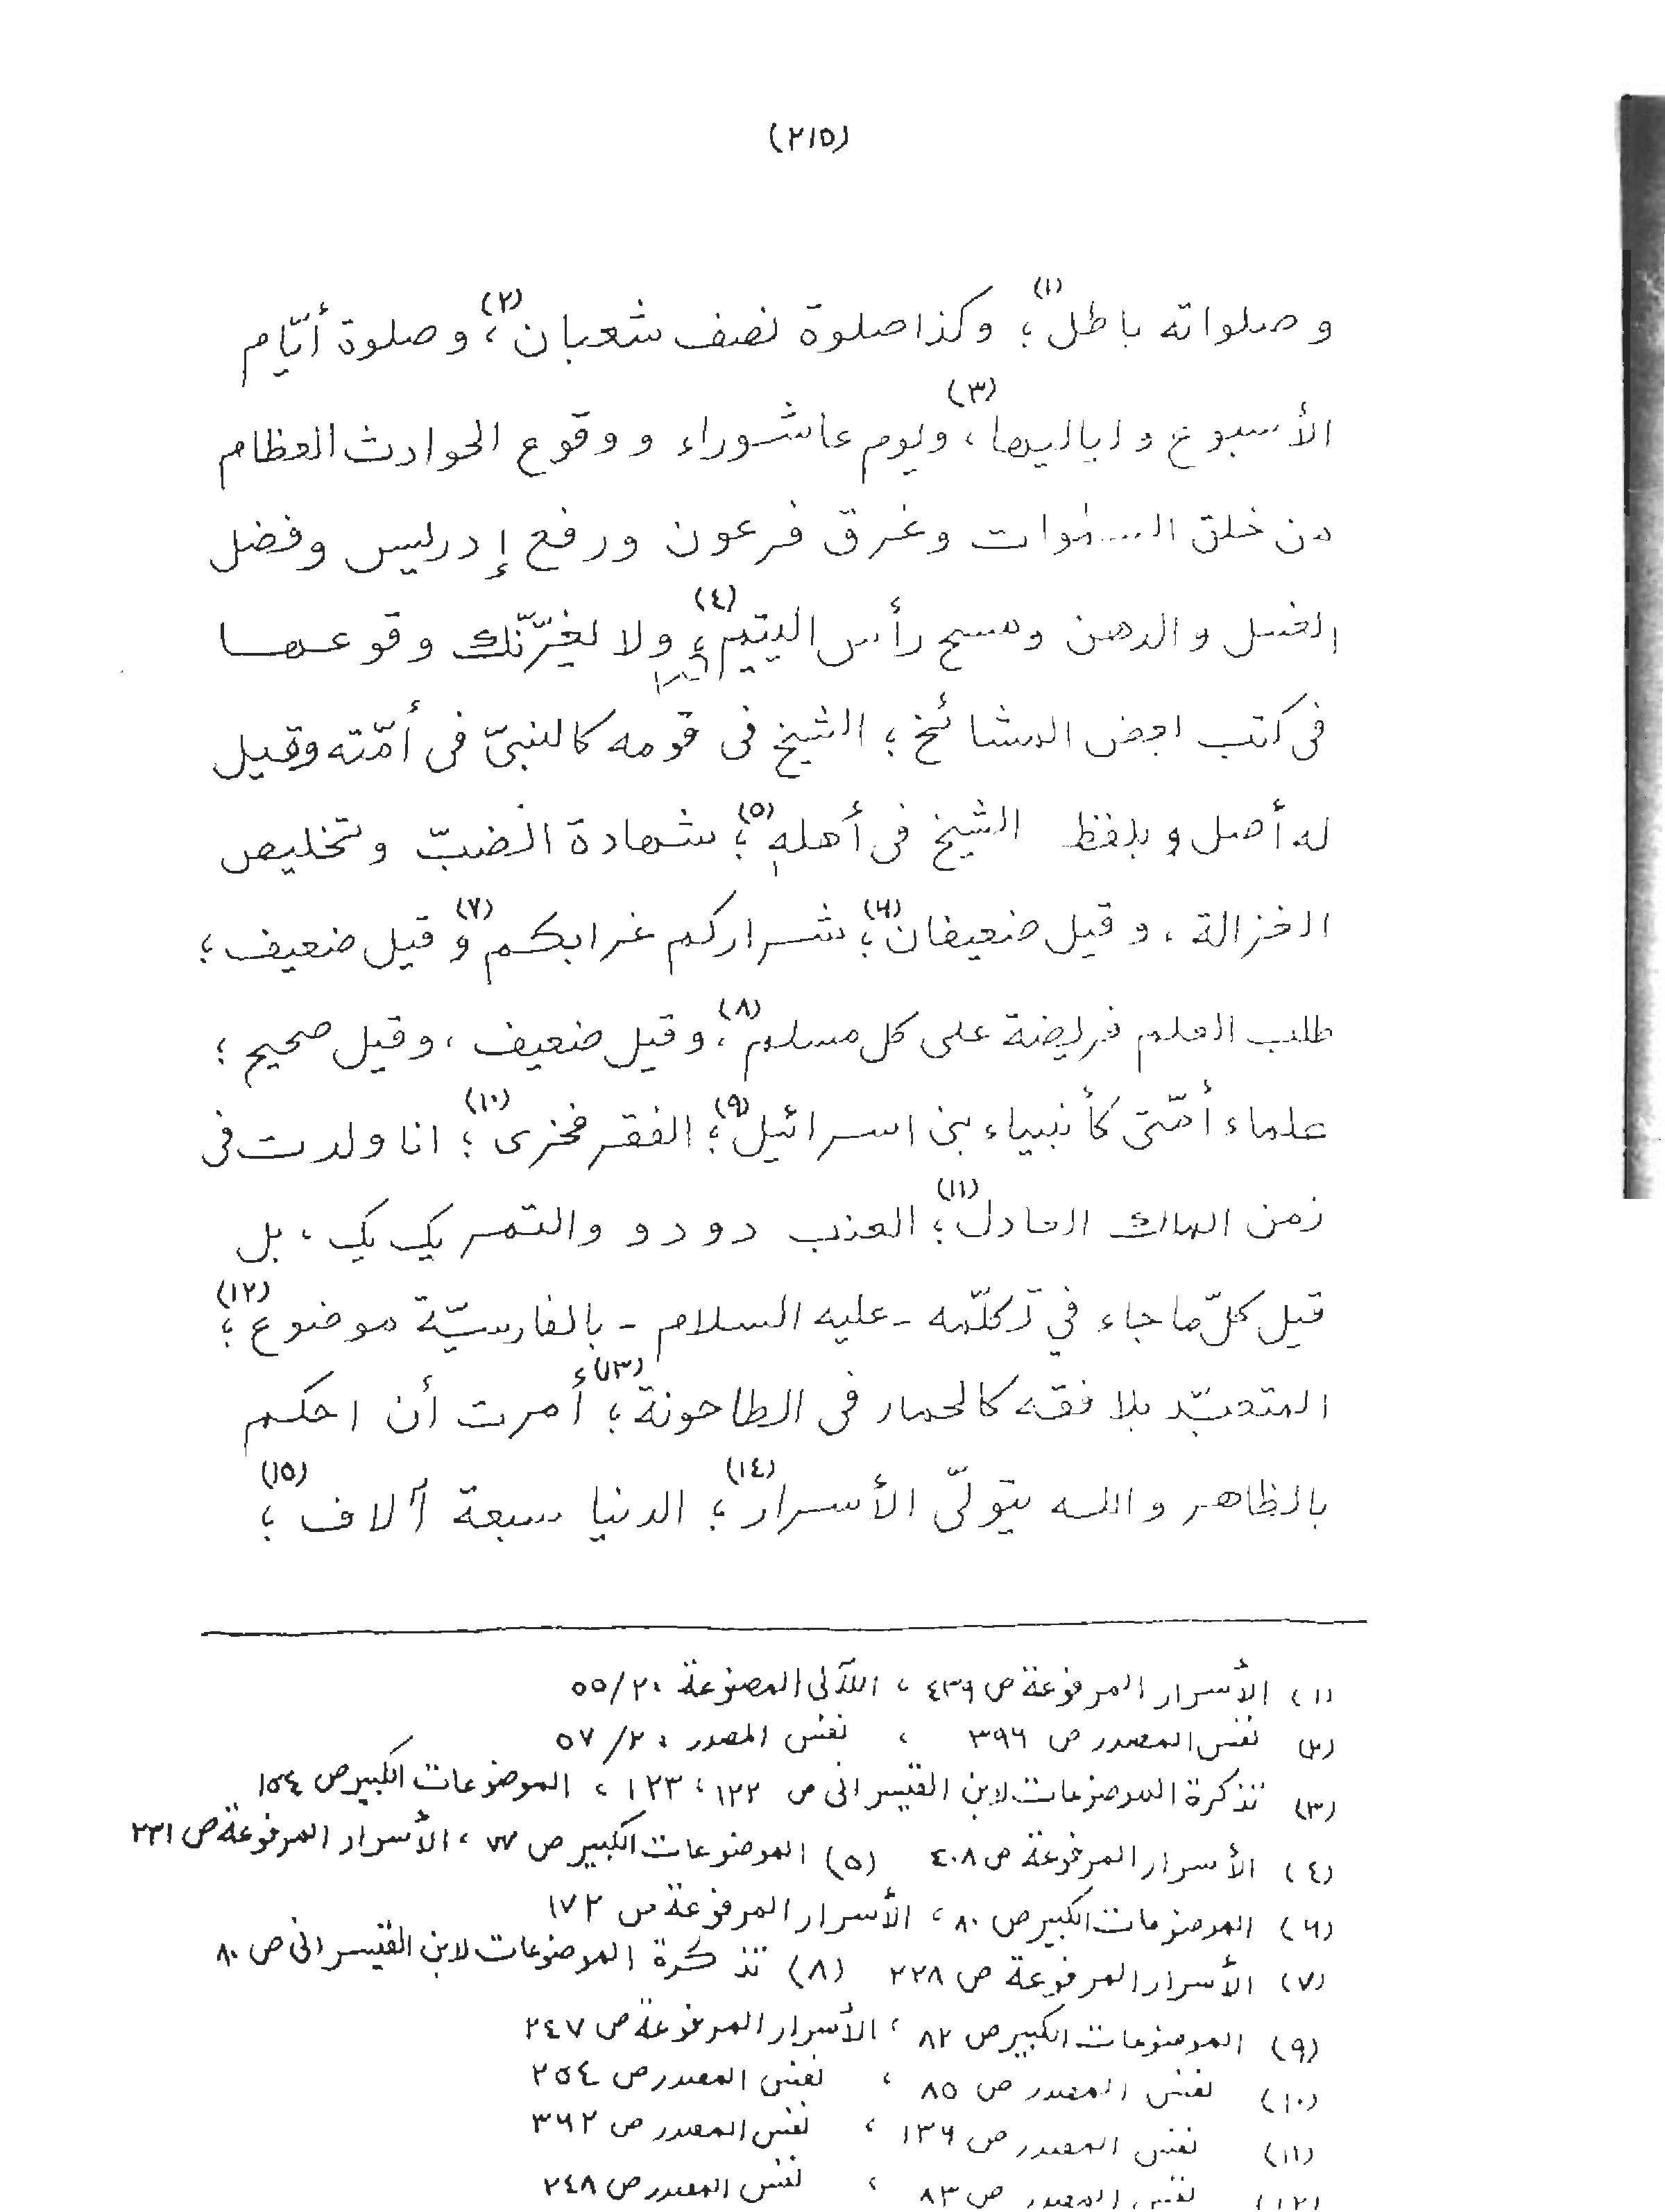 (٢١٥)
وصلواته باطل (١)؛ وكذا صلوة نصف شعبان (٢)؛ وصلوة أيّام
الأسبوع ولياليها، ويوم عاشوراء (٣) ووقوع الحوادث العظام
من خلق السموات وغرق فرعون ورفع إدريس وفضل
الغسل والدهن ومسح رأس اليتيم (٤)؛ ولا يغرّنّك وقوعها
فى كتب بعض المشائخ؛ الشيخ فى قومه كالنبىّ فى أمّته وقيل
له أصل وبلفظ الشيخ فى أهله (٥)؛ شهادة الضبّ وتخليص
الغزالة، وقيل ضعيفان (٦)؛ شراركم عزابكم (٧) وقيل ضعيف؛
طلب العلم فريضة على كل مسلم (٨)، وقيل ضعيف، وقيل صحيح؛
علماء أمّتى كأنبياء بنى اسرائيل (٩)؛ الفقر فخرى (١٠)؛ انا ولدت فى
زمن الملك العادل (١١)؛ العنب دو دو والتمر يك يك، بل
قيل كلّ ما جاء في تكلّمه - عليه السلام - بالفارسيّة موضوع (١٢)؛
المتعبّد بلا فقه كالحمار فى الطاحونة (١٣)؛ أمرت أن احكم
بالظاهر والله يتولّى الأسرار (١٤)؛ الدنيا سبعة آلاف (١٥)؛
(١) الأسرار المرفوعة ص ٤٣٩، اللآلى المصنوعة ٢٠/٥٥
(٢) نفس المصدر ص ٣٩٦، نفس المصدر ٢٠/٥٧
(٣) تذكرة الموضوعات لابن القيسرانى ص ١٢٢، ١٢٣، الموضوعات الكبير ص ١٥٤
(٤) الأسرار المرفوعة ص ٤٠٨ (٥) الموضوعات الكبير ص ٧٧، الأسرار المرفوعة ص ٢٣١
(٦) الموضوعات الكبير ص ٨٠، الأسرار المرفوعة ص ١٧٢
(٧) الأسرار المرفوعة ص ٢٢٨ (٨) تذكرة الموضوعات لابن القيسرانى ص ٨٠
(٩) الموضوعات الكبير ص ٨٢، الأسرار المرفوعة ص ٢٤٧
(١٠) نفس المصدر ص ٨٥، نفس المصدر ص ٢٥٤
(١١) نفس المصدر ص ١٣٦، نفس المصدر ص ٣٦٢
(١٢) نفس المصدر ص ٨٣، نفس المصدر ص ٢٤٨